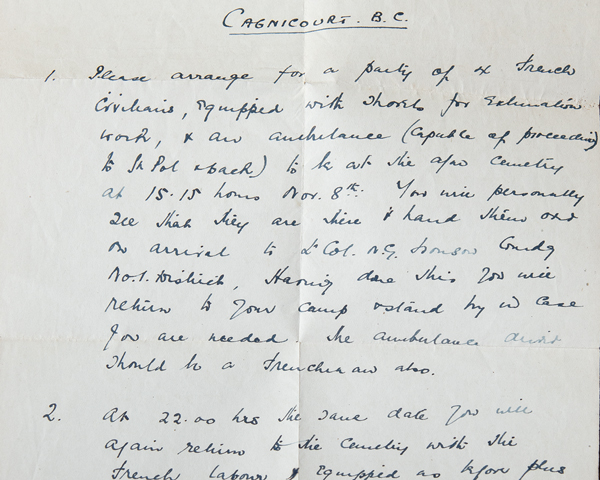 CAGNICOURT. B.C.
1. Please arrange for a party of 4 French
Civilians, equipped with shovels for Exhumation
work, & an ambulance (capable of proceeding
to St Pol & back) to be at the afsd Cemetery
at 15.15 hours Nov. 8th. You will personally
see that they are there & hand them over
on arrival to Lt Col. Gonson Comdg
No.1. District, Having done this you will
return to your camp & stand by in case
you are needed. The ambulance driver
should be a Frenchman also.
2. At 22.00 hrs the same date you will
again return to the cemetery with the
French labour & equipped as before plus